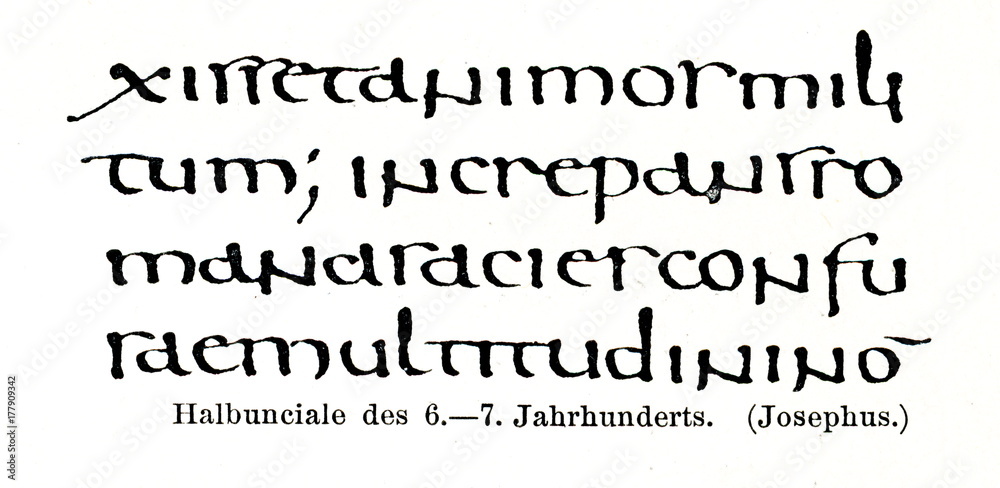 xissetanimosmili
tum; increpansro
manasaciesconfu
saemultitudininō
Halbunciale des 6.—7. Jahrhunderts. (Josephus.)
Adobe Stock | #177909342